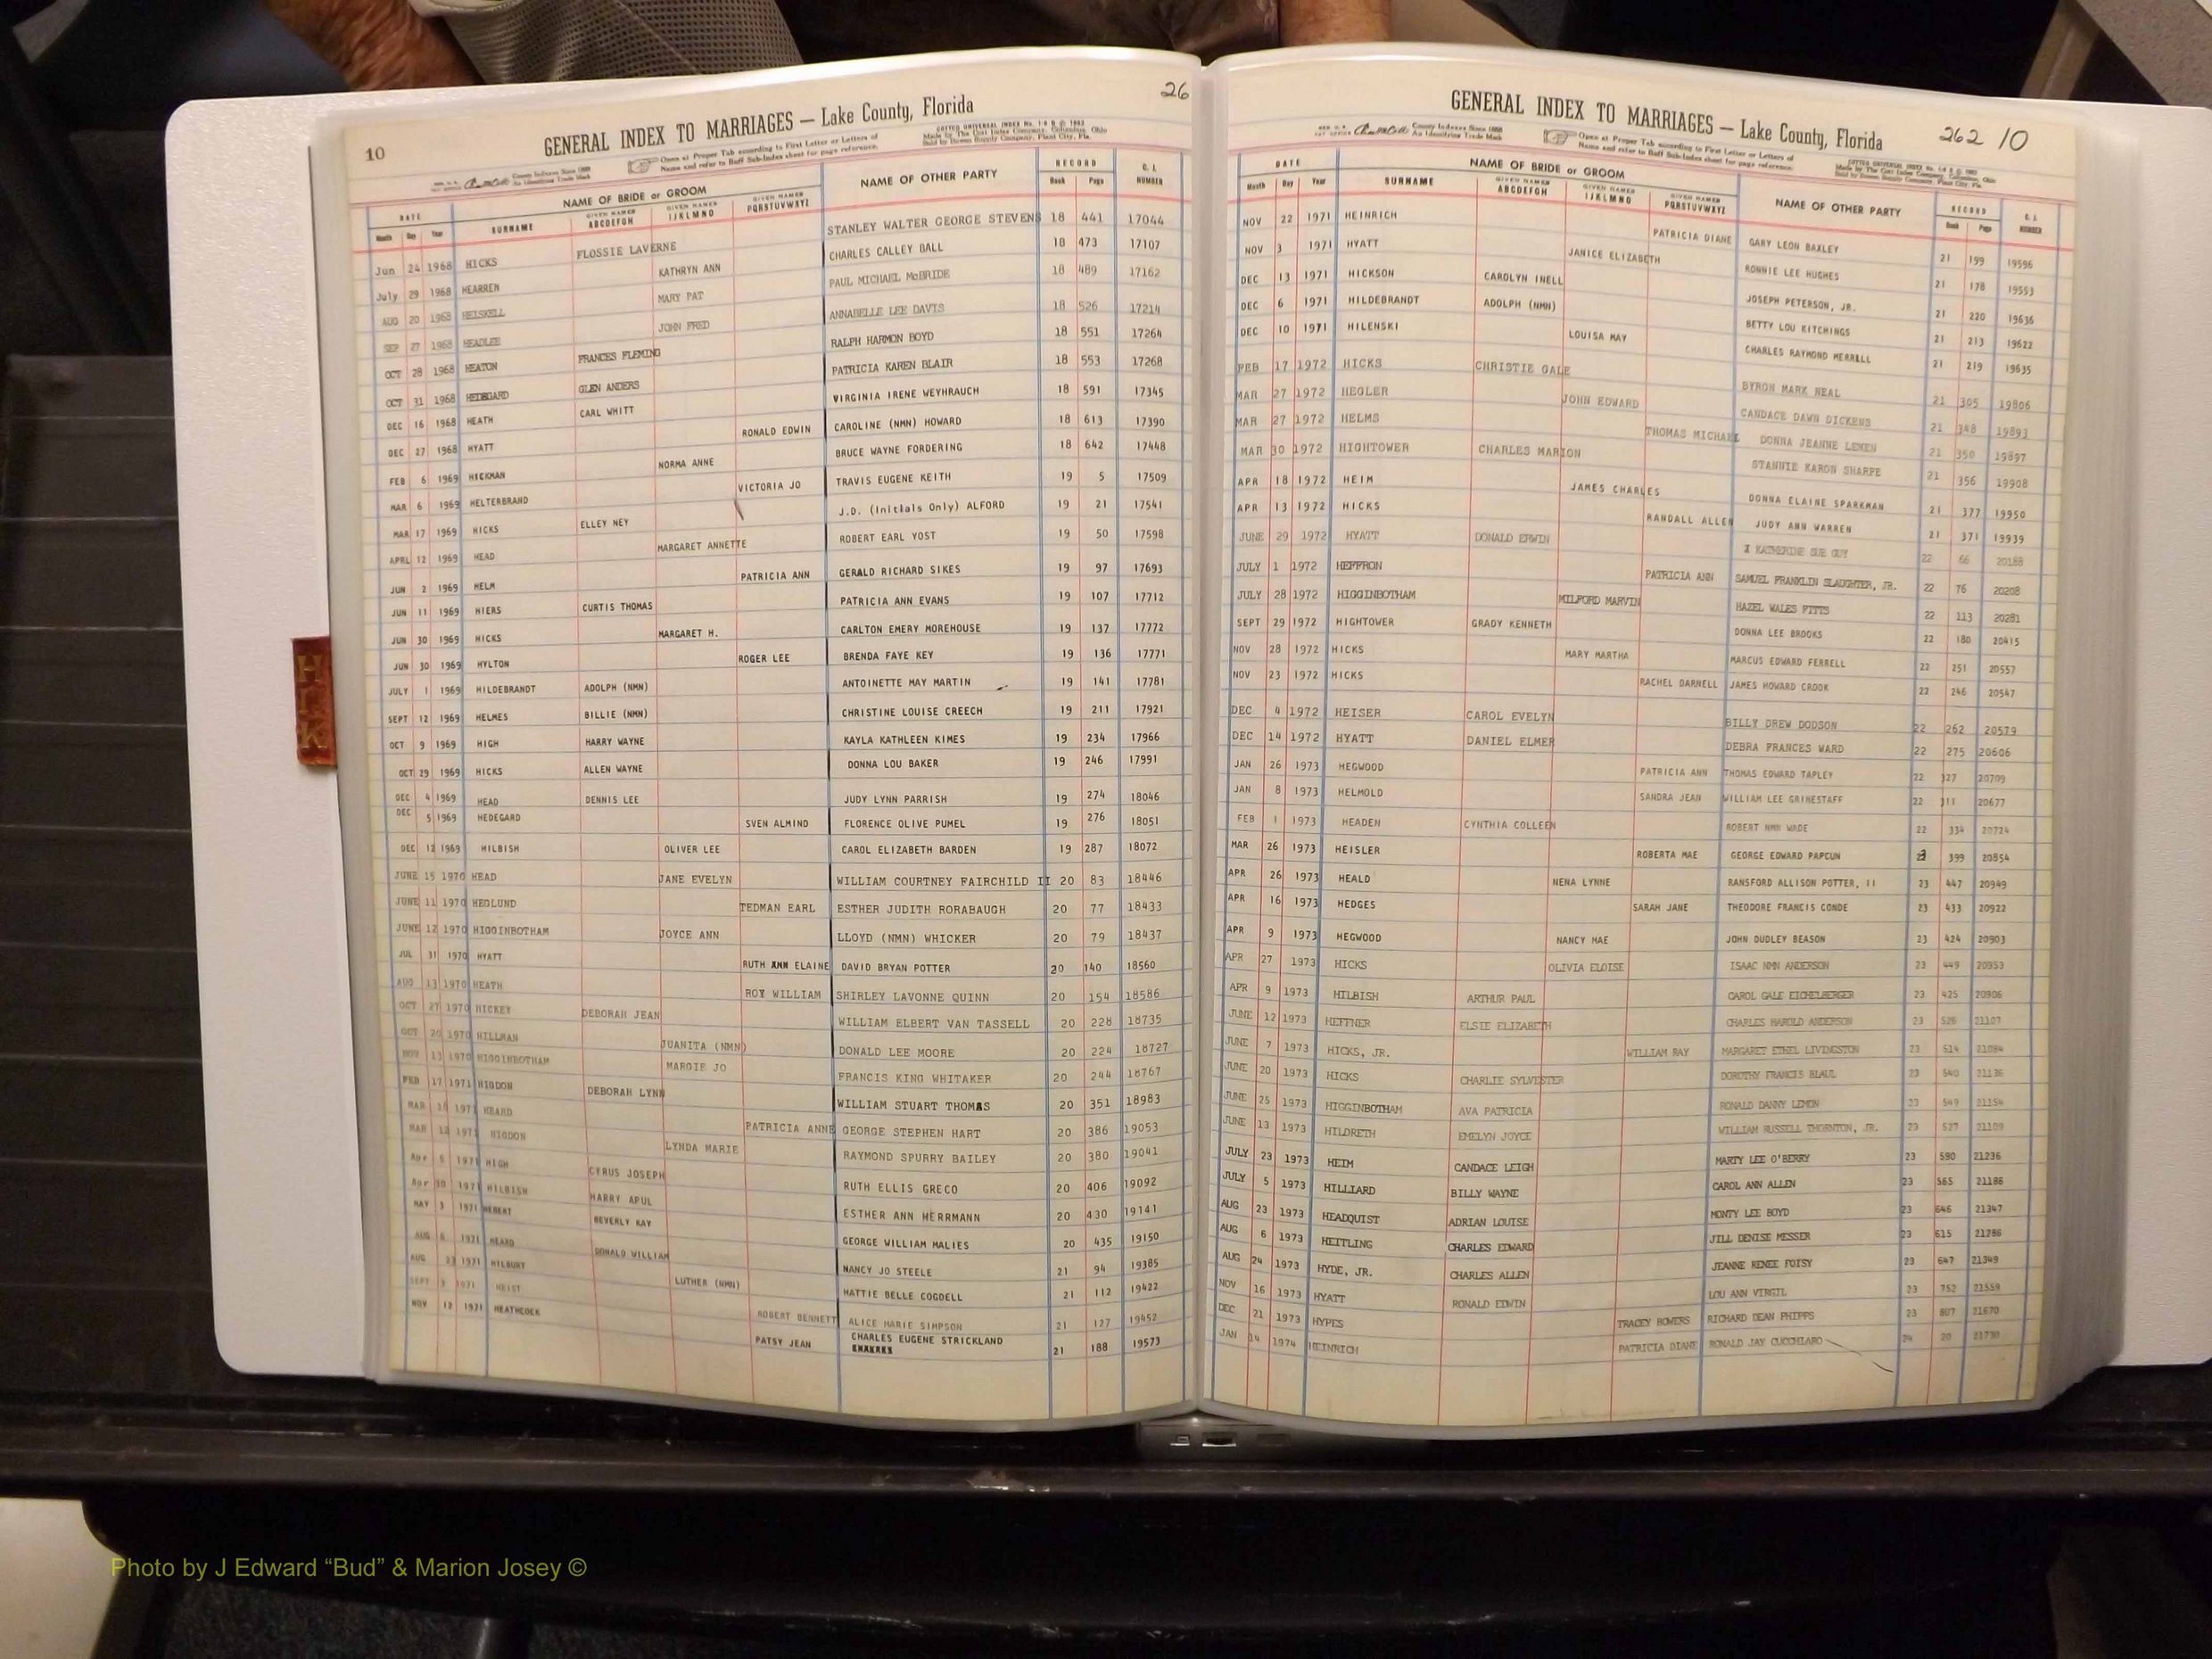 26
10 GENERAL INDEX TO MARRIAGES — Lake County, Florida
COTT'S UNIVERSAL INDEX
County Indexes Since 1888
An Identifying Trade Mark
Open at Proper Tab according to First Letter or Letters of
Name and refer to Buff Sub-Index sheet for page reference.
Made by The Cott Index Company, Columbus, Ohio
DATE NAME OF BRIDE or GROOM NAME OF OTHER PARTY RECORD
Month Day Year SURNAME GIVEN NAMES ABCDEFGH GIVEN NAMES IJKLMNO GIVEN NAMES PQRSTUVWXYZ Book Page NUMBER
Jun 24 1968 HICKS FLOSSIE LAVERNE STANLEY WALTER GEORGE STEVENS 18 441 17044
July 29 1968 HEARREN KATHRYN ANN CHARLES CALLEY BALL 18 473 17107
AUG 20 1968 HEISKELL MARY PAT PAUL MICHAEL McBRIDE 18 489 17162
SEP 27 1968 HEADLEE JOHN FRED ANNABELLE LEE DAVIS 18 526 17214
OCT 28 1968 HEATON FRANCES FLEMING RALPH HARMON BOYD 18 551 17264
OCT 31 1968 HEDEGARD GLEN ANDERS PATRICIA KAREN BLAIR 18 553 17268
DEC 16 1968 HEATH CARL WHITT VIRGINIA IRENE WEYHRAUCH 18 591 17345
DEC 27 1968 HYATT RONALD EDWIN CAROLINE (NMN) HOWARD 18 613 17390
FEB 6 1969 HICKMAN NORMA ANNE BRUCE WAYNE FORDERING 18 642 17448
MAR 6 1969 HELTERBRAND VICTORIA JO TRAVIS EUGENE KEITH 19 5 17509
MAR 17 1969 HICKS ELLEY NEY J.D. (Initials Only) ALFORD 19 21 17541
APRL 12 1969 HEAD MARGARET ANNETTE ROBERT EARL YOST 19 50 17598
JUN 2 1969 HELM PATRICIA ANN GERALD RICHARD SIKES 19 97 17693
JUN 11 1969 HIERS CURTIS THOMAS PATRICIA ANN EVANS 19 107 17712
JUN 30 1969 HICKS MARGARET H. CARLTON EMERY MOREHOUSE 19 137 17772
JUN 30 1969 HYLTON ROGER LEE BRENDA FAYE KEY 19 136 17771
JULY 1 1969 HILDEBRANDT ADOLPH (NMN) ANTOINETTE MAY MARTIN 19 141 17781
SEPT 12 1969 HELMES BILLIE (NMN) CHRISTINE LOUISE CREECH 19 211 17921
OCT 9 1969 HIGH HARRY WAYNE KAYLA KATHLEEN KIMES 19 234 17966
OCT 29 1969 HICKS ALLEN WAYNE DONNA LOU BAKER 19 246 17991
DEC 4 1969 HEAD DENNIS LEE JUDY LYNN PARRISH 19 274 18046
DEC 5 1969 HEDEGARD SVEN ALMIND FLORENCE OLIVE PUMEL 19 276 18051
DEC 12 1969 HILBISH OLIVER LEE CAROL ELIZABETH BARDEN 19 287 18072
JUNE 15 1970 HEAD JANE EVELYN WILLIAM COURTNEY FAIRCHILD II 20 83 18446
JUNE 11 1970 HEDLUND TEDMAN EARL ESTHER JUDITH RORABAUGH 20 77 18433
JUNE 12 1970 HIGGINBOTHAM JOYCE ANN LLOYD (NMN) WHICKER 20 79 18437
JUL 31 1970 HYATT RUTH ANN ELAINE DAVID BRYAN POTTER 20 140 18560
AUG 13 1970 HEATH ROY WILLIAM SHIRLEY LAVONNE QUINN 20 154 18586
OCT 27 1970 HICKEY DEBORAH JEAN WILLIAM ELBERT VAN TASSELL 20 228 18735
OCT 20 1970 HILLMAN JUANITA (NMN) DONALD LEE MOORE 20 224 18727
NOV 13 1970 HIGGINBOTHAM MARGIE JO FRANCIS KING WHITAKER 20 244 18767
FEB 17 1971 HIGDON DEBORAH LYNN WILLIAM STUART THOMAS 20 351 18983
MAR 1971 HEARD PATRICIA ANNE GEORGE STEPHEN HART 20 386 19053
MAR 12 1971 HIGDON LYNDA MARIE RAYMOND SPURRY BAILEY 20 380 19041
Apr 5 1971 HIGH CYRUS JOSEPH RUTH ELLIS GRECO 20 406 19092
Apr 30 1971 HILBISH HARRY APUL ESTHER ANN HERRMANN 20 430 19141
MAY 3 1971 HEBERT BEVERLY KAY GEORGE WILLIAM MALIES 20 435 19150
AUG 6 1971 HEARD DONALD WILLIAM NANCY JO STEELE 21 94 19385
AUG 23 1971 HILBURT LUTHER (NMN) HATTIE BELLE COGDELL 21 112 19422
SEPT 3 1971 HEIST ROBERT BENNETT ALICE MARIE SIMPSON 21 127 19452
NOV 12 1971 HEATHCOCK PATSY JEAN CHARLES EUGENE STRICKLAND 21 188 19573
GENERAL INDEX TO MARRIAGES — Lake County, Florida 262 10
County Indexes Since 1888
An Identifying Trade Mark
Open at Proper Tab according to First Letter or Letters of
Name and refer to Buff Sub-Index sheet for page reference.
DATE NAME OF BRIDE or GROOM NAME OF OTHER PARTY RECORD
Month Day Year SURNAME GIVEN NAMES ABCDEFGH GIVEN NAMES IJKLMNO GIVEN NAMES PQRSTUVWXYZ Book Page NUMBER
NOV 22 1971 HEINRICH PATRICIA DIANE GARY LEON BAXLEY 21 199 19596
NOV 3 1971 HYATT JANICE ELIZABETH RONNIE LEE HUGHES 21 178 19553
DEC 13 1971 HICKSON CAROLYN INELL JOSEPH PETERSON, JR. 21 220 19636
DEC 6 1971 HILDEBRANDT ADOLPH (NMN) BETTY LOU KITCHINGS 21 213 19622
DEC 10 1971 HILENSKI LOUISA MAY CHARLES RAYMOND MERRILL 21 219 19635
FEB 17 1972 HICKS CHRISTIE GALE BYRON MARK NEAL 21 305 19806
MAR 27 1972 HEGLER JOHN EDWARD CANDACE DAWN DICKENS 21 348 19893
MAR 27 1972 HELMS THOMAS MICHAEL DONNA JEANNE LEMEN 21 350 19897
MAR 30 1972 HIGHTOWER CHARLES MARION STANNIE KARON SHARPE 21 356 19908
APR 18 1972 HEIM JAMES CHARLES DONNA ELAINE SPARKMAN 21 377 19950
APR 13 1972 HICKS RANDALL ALLEN JUDY ANN WARREN 21 371 19939
JUNE 29 1972 HYATT DONALD ERWIN KATHERINE SUE GUY 22 66 20188
JULY 1 1972 HEFFRON PATRICIA ANN SAMUEL FRANKLIN SLAUGHTER, JR. 22 76 20208
JULY 28 1972 HIGGINBOTHAM MILFORD MARVIN HAZEL WALES FITTS 22 113 20281
SEPT 29 1972 HIGHTOWER GRADY KENNETH DONNA LEE BROOKS 22 180 20415
NOV 28 1972 HICKS MARY MARTHA MARCUS EDWARD FERRELL 22 251 20557
NOV 23 1972 HICKS RACHEL DARNELL JAMES HOWARD CROOK 22 246 20547
DEC 4 1972 HEISER CAROL EVELYN BILLY DREW DODSON 22 262 20579
DEC 14 1972 HYATT DANIEL ELMER DEBRA FRANCES WARD 22 275 20606
JAN 26 1973 HEGWOOD PATRICIA ANN THOMAS EDWARD TAPLEY 22 327 20709
JAN 8 1973 HELMOLD SANDRA JEAN WILLIAM LEE GRINESTAFF 22 311 20677
FEB 1 1973 HEADEN CYNTHIA COLLEEN ROBERT NMN WADE 22 334 20724
MAR 26 1973 HEISLER ROBERTA MAE GEORGE EDWARD PAPCUN 399 20854
APR 26 1973 HEALD NENA LYNNE RANSFORD ALLISON POTTER, II 23 447 20949
APR 16 1973 HEDGES SARAH JANE THEODORE FRANCIS CONDE 23 433 20922
APR 9 1973 HEGWOOD NANCY MAE JOHN DUDLEY BEASON 23 424 20903
APR 27 1973 HICKS OLIVIA ELOISE ISAAC NMN ANDERSON 23 449 20953
APR 9 1973 HILBISH ARTHUR PAUL CAROL GALE EICHELBERGER 23 425 20906
JUNE 12 1973 HEFFNER ELSIE ELIZABETH CHARLES HAROLD ANDERSON 23 526 21107
JUNE 7 1973 HICKS, JR. WILLIAM RAY MARGARET ETHEL LIVINGSTON 23 514 21084
JUNE 20 1973 HICKS CHARLIE SYLVESTER DOROTHY FRANCIS BLAUL 23 540 21136
JUNE 25 1973 HIGGINBOTHAM AVA PATRICIA RONALD DANNY LEMON 23 549 21154
JUNE 13 1973 HILDRETH EMELYN JOYCE WILLIAM RUSSELL THORNTON, JR. 23 527 21109
JULY 23 1973 HEIM CANDACE LEIGH MARTY LEE O'BERRY 23 590 21236
JULY 5 1973 HILLIARD BILLY WAYNE CAROL ANN ALLEN 23 565 21186
AUG 23 1973 HEADQUIST ADRIAN LOUISE MONTY LEE BOYD 23 646 21347
AUG 6 1973 HEITLING CHARLES EDWARD JILL DENISE MESSER 23 615 21286
AUG 24 1973 HYDE, JR. CHARLES ALLEN JEANNE RENEE FOISY 23 647 21349
NOV 16 1973 HYATT RONALD EDWIN LOU ANN VIRGIL 23 752 21559
DEC 21 1973 HYPES TRACEY BOWERS RICHARD DEAN PHIPPS 23 807 21670
JAN 14 1974 HEINRICH PATRICIA DIANE RONALD JAY CUCCHIARO 24 20 21730
H
I
K
Photo by J Edward “Bud” & Marion Josey ©